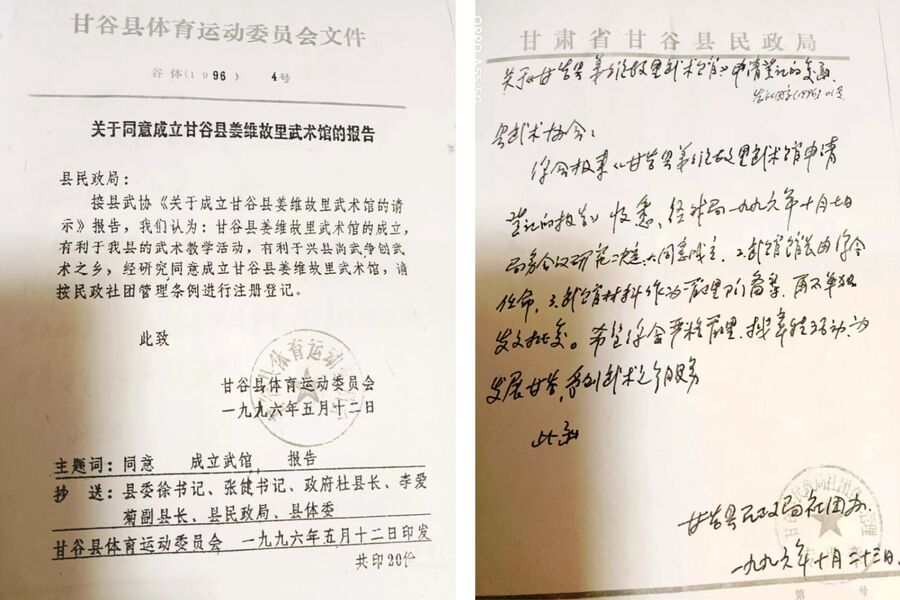 甘谷县体育运动委员会文件
谷体(1996) 4号
关于同意成立甘谷县姜维故里武术馆的报告
县民政局：
接县武协《关于成立甘谷县姜维故里武术馆的请
示》报告，我们认为：甘谷县姜维故里武术馆的成立，
有利于我县的武术教学活动，有利于兴县尚武争创武
术之乡，经研究同意成立甘谷县姜维故里武术馆，请
按民政社团管理条例进行注册登记。
此致
甘谷县体育运动委员会
一九九六年五月十二日
主题词：同意 成立武馆 报告
抄 送：县委徐书记、张健书记、政府杜县长、李爱
菊副县长、县民政局、县体委
甘谷县体育运动委员会 一九九六年五月十二日印发
共印20份
OPPO A55 5G
甘肃省甘谷县民政局
关于《甘谷县姜维故里武术馆》申请登记的复函
(1996) 01号
县武术协会：
你会报来《甘谷县姜维故里武术馆申请
登记的报告》收悉，经我局一九九六年十月七日
局务会议研究决定：1.同意成立，2.武馆馆长由你会
任命，3.武馆材料作为管理部门备案，再不单独
发文批复。希望你会严格管理，积极开展活动，为
发展甘谷，争创武术之乡服务
此函
甘谷县民政局社团办
一九九六年十月二十三日
第 号